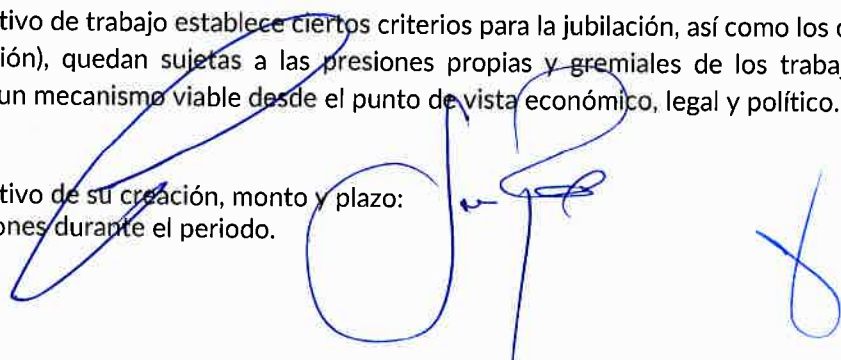 tivo de trabajo establece ciertos criterios para la jubilación, así como los
ión), quedan sujetas a las presiones propias y gremiales de los
un mecanismo viable desde el punto de vista económico, legal y político.
tivo de su creación, monto y plazo:
ones durante el periodo.